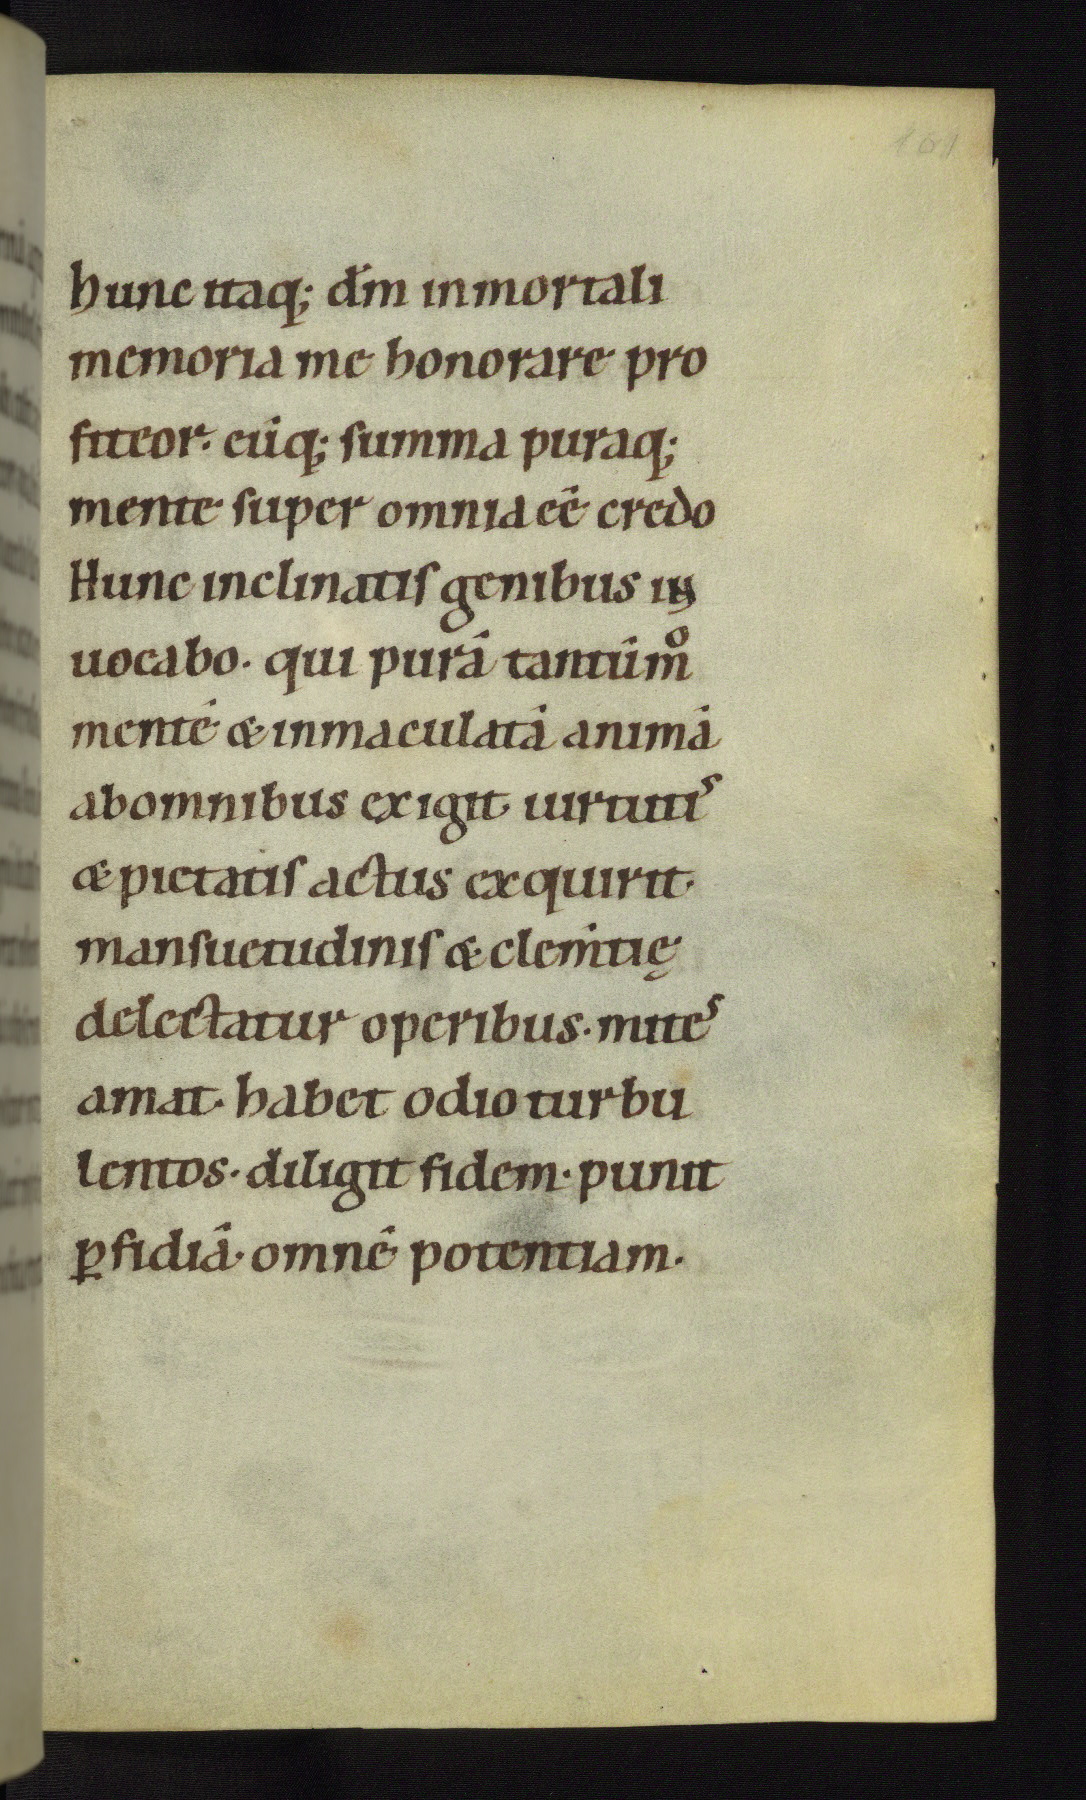 161
hunc itaq; dm̄ inmortali
memoria me honorare pro
fiteor. eūq; summa puraq;
mente super omnia eē credo
Hunc inclinatis genibus in
uocabo. qui purā tantūmͦ
mentē & inmaculatā animā
abomnibus exigit. uirtutis
& pietatis actus exquirit.
mansuetudinis & clem̄tię
delectatur operibus. mites
amat. habet odio turbu
lentos. diligit fidem. punit
ꝑfidiā. omnē potentiam.